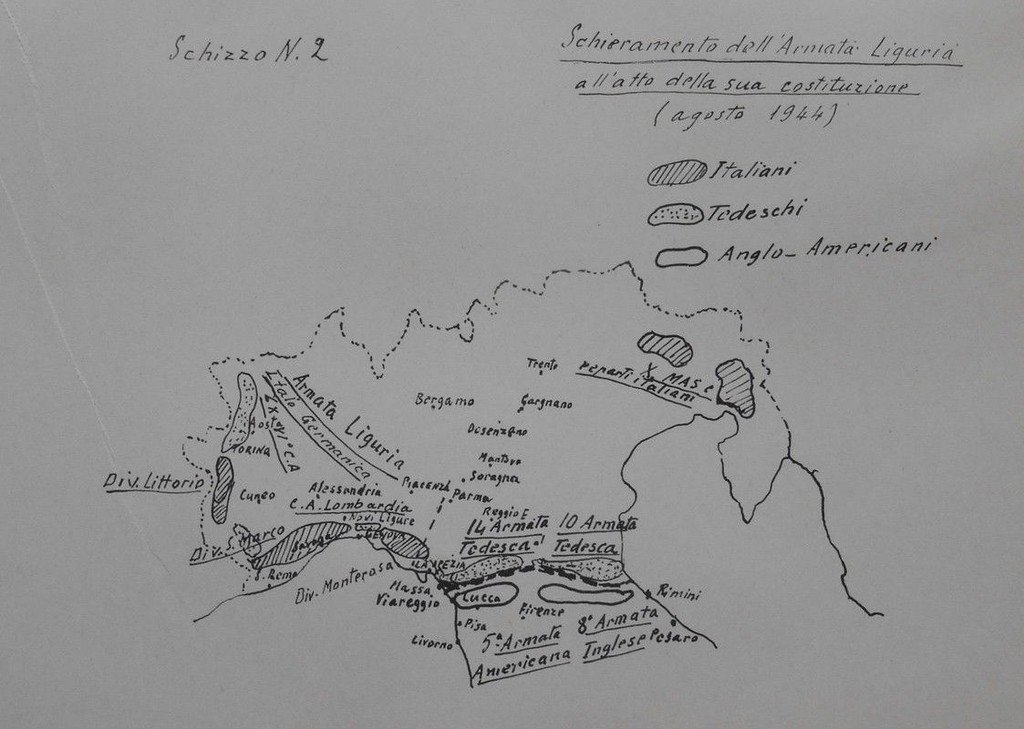 Schizzo N. 2
Schieramento dell'Armata Liguria
all'atto della sua costituzione
(agosto 1944)
Italiani
Tedeschi
Anglo-Americani
Trento
X MAS e
reparti italiani
Armata Liguria
Italo Germanica
C.A
Bergamo
Gargnano
Desenzano
Aos
TORINA
Mantova
Soragna
Div. Littorio
Cuneo
Alessandria
PIACENZA
Parma
C.A. Lombardia
Novi Ligure
Reggio E
14 Armata
Tedesca
10 Armata
Tedesca
Div. S. Marco
Savona
GENOVA
S. Remo
Div. Monterosa
LA SPEZIA
Massa
Viareggio
Lucca
Firenze
Rimini
Pisa
Livorno
5ª Armata
Americana
8ª Armata
Inglese
Pesaro